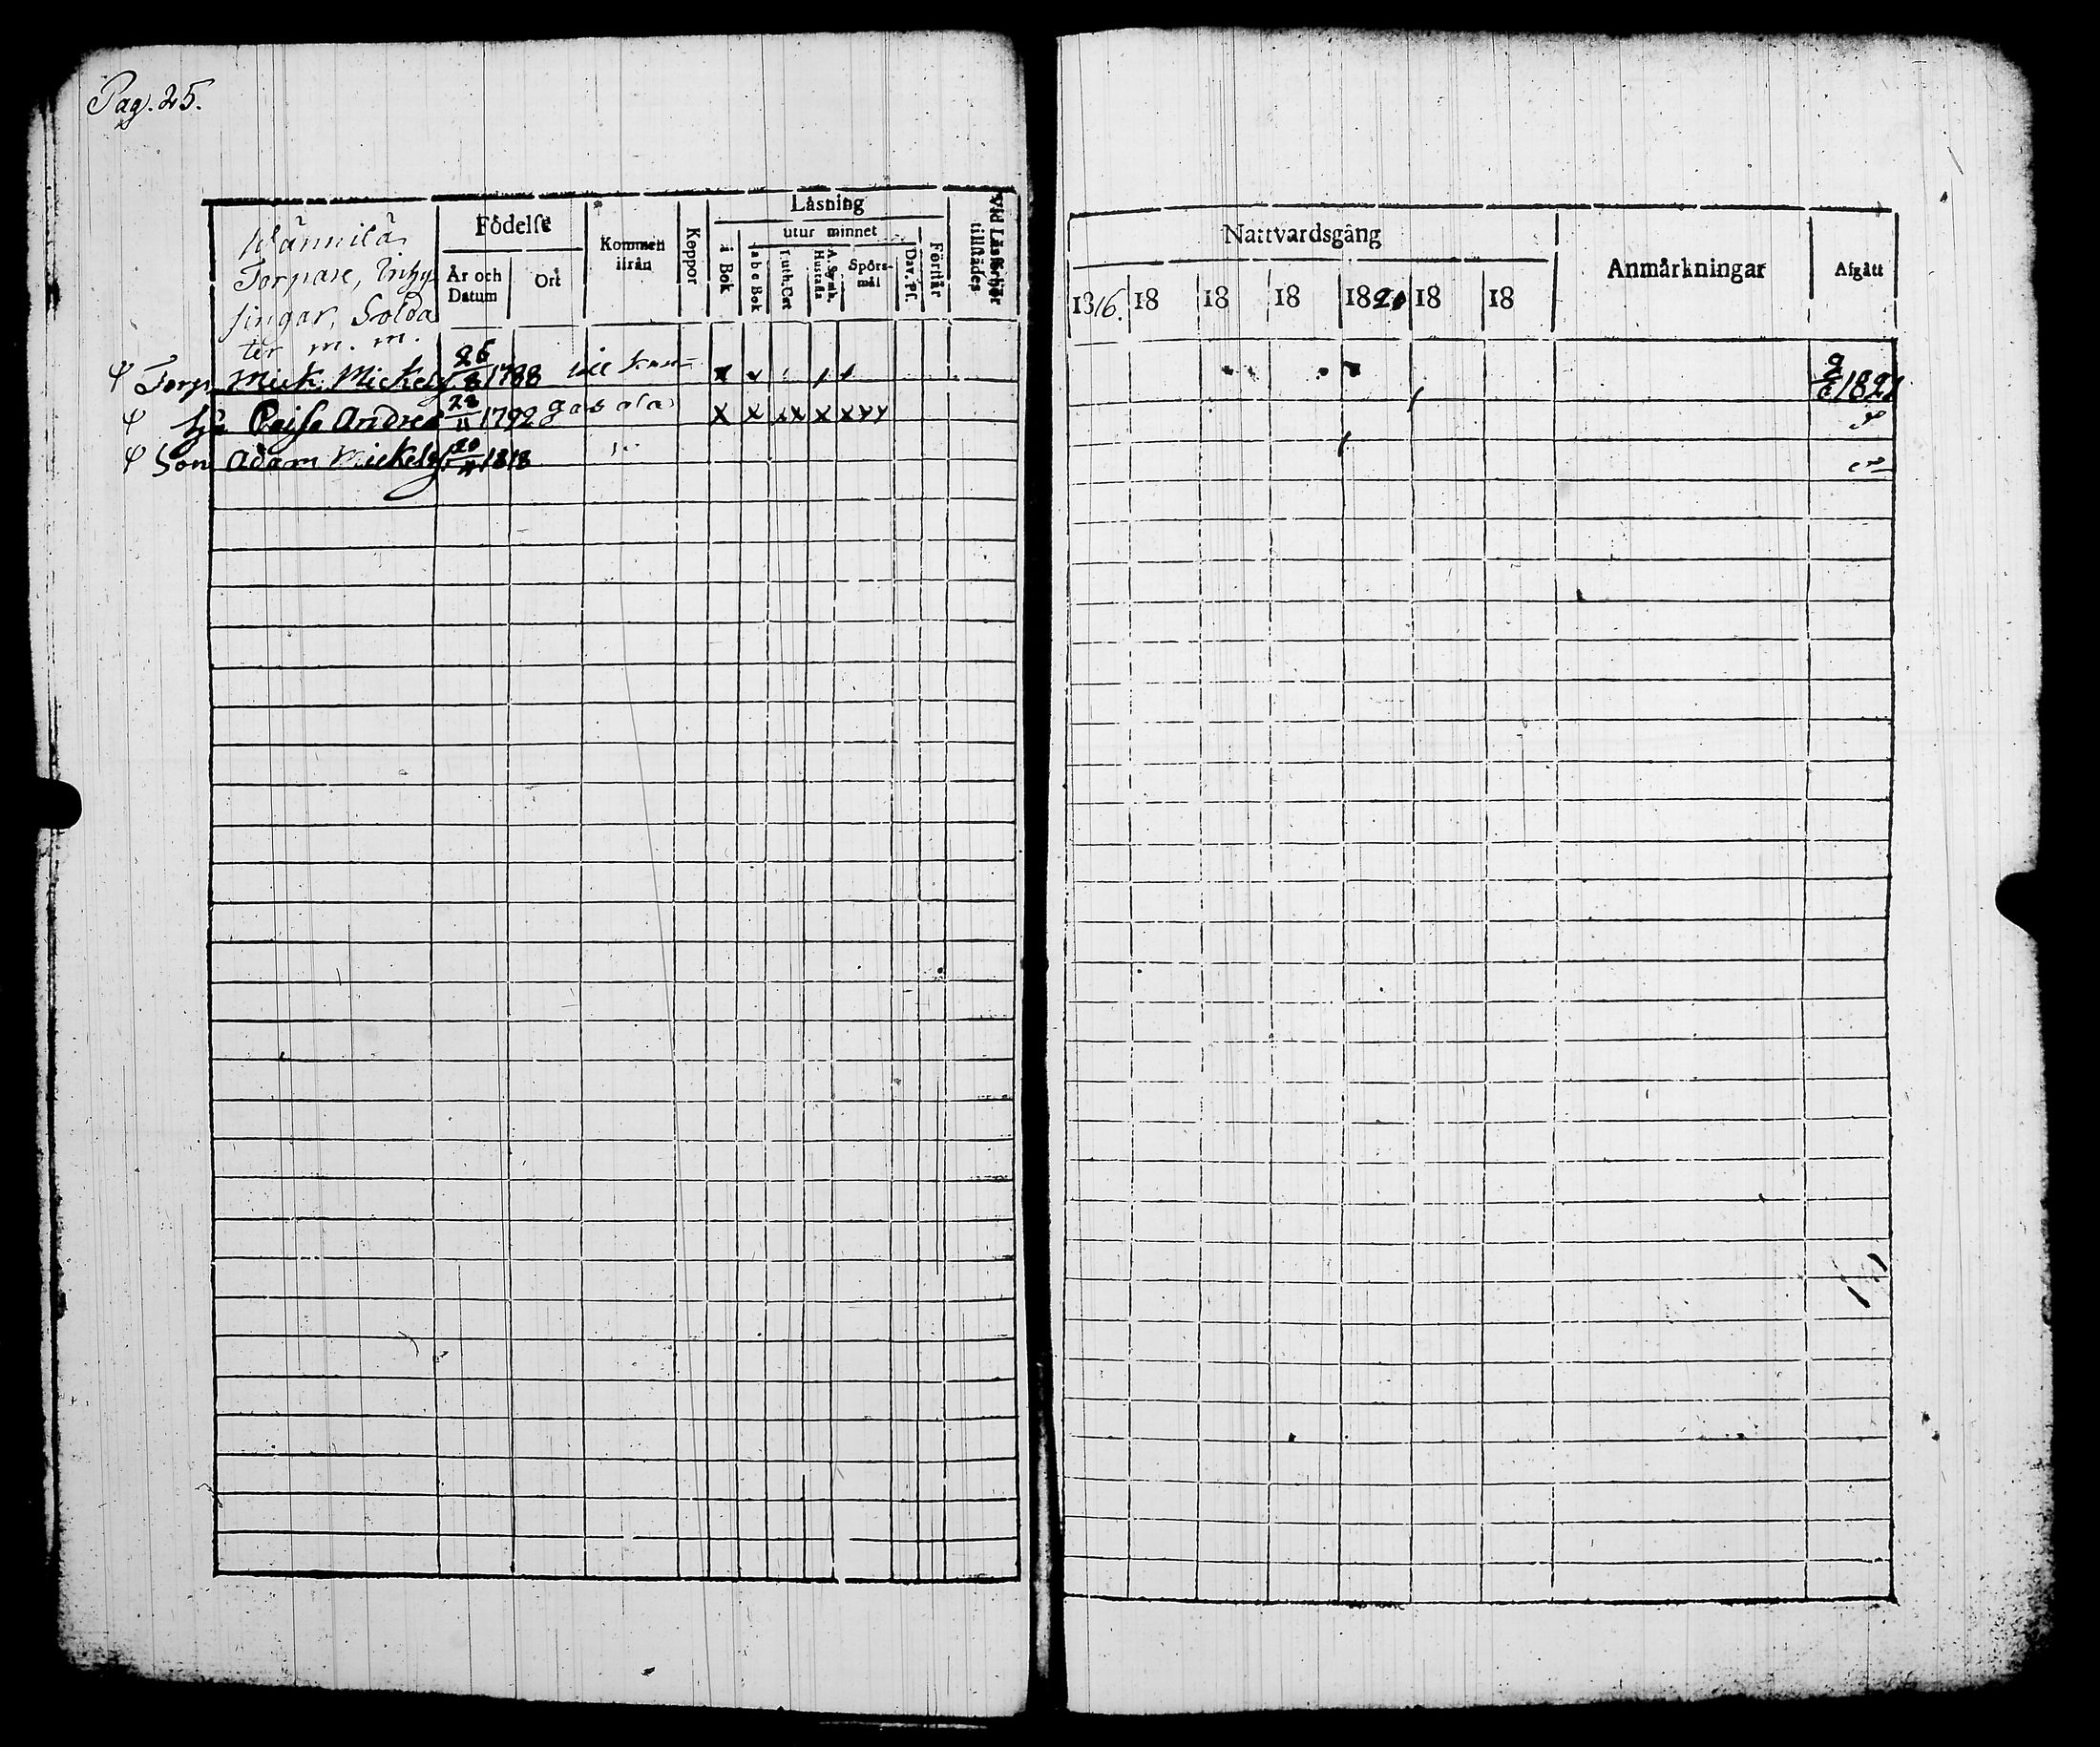 Pag. 25.
Wännilä
Torpare, Inhy-
singar, Solda
ter m. m.
Födelse
År och Datum
Ort
Kommen ifrån
Koppor
Låsning
i Bok
utur minnet
a b c Bok
Luth. Cat
A. Symb. Hustafla
Spörs-mål
Dav. Ps.
Förstår
Vid Läsförhör tillstädes
Torp. Mick. Mickelss 26/8 1788
hu Caisa Andred 28/11 1792
Son Adam Mickelss 20/11 1818
Nattvardsgång
1816. 18 18 18 1820 18 18
Anmärkningar
Afgått
1821